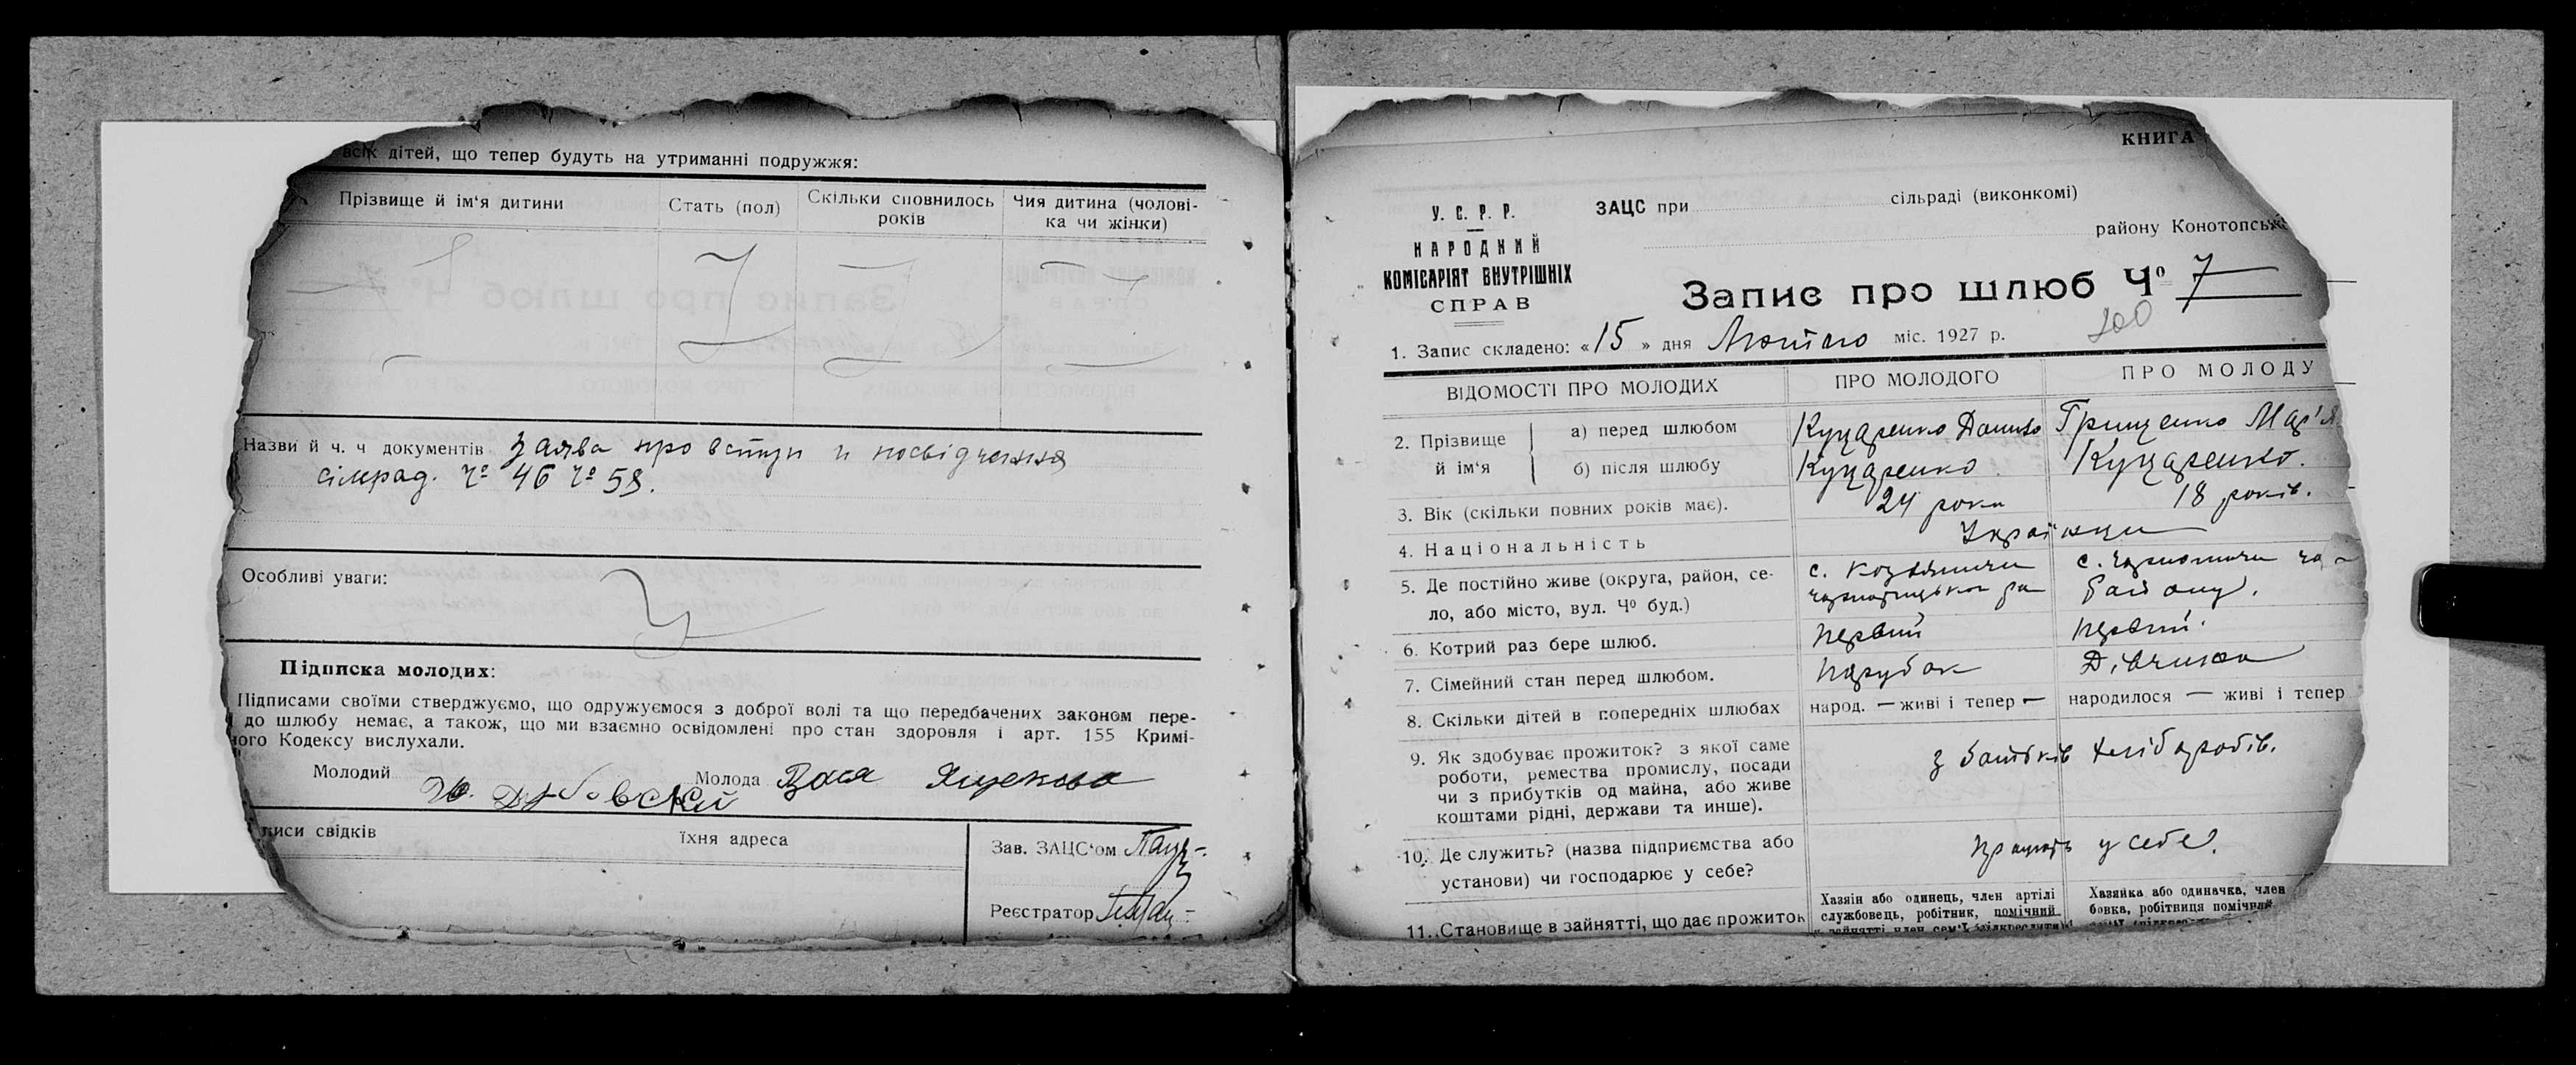 всіх дітей, що тепер будуть на утриманні подружжя:
Прізвище й ім'я дитини
Стать (пол)
Скільки сповнилось
років
Чия дитина (чолові-
ка чи жінки)
Назви й ч. ч документів Заява про вступ и посвідчення
сільрад. Ч° 46 Ч° 58.
Особливі уваги:
Підписка молодих:
Підписами своїми стверджуємо, що одружуємося з доброї волі та що передбачених законом пере-
до шлюбу немає, а також, що ми взаємно освідомлені про стан здоровля і арт. 155 Кримі-
ного Кодексу вислухали.
Молодий
Дубовский
Молода
писи свідків
їхня адреса
Зав. ЗАЦС'ом
Реєстратор
КНИГА
У. С. Р. Р.
НАРОДНИЙ
КОМІСАРІЯТ ВНУТРІШНІХ
СПРАВ
ЗАЦС при сільраді (виконкомі)
району Конотопськ
Запис про шлюб Ч° 7
100
1. Запис складено: «15» дня Лютого міс. 1927 р.
ВІДОМОСТІ ПРО МОЛОДИХ
ПРО МОЛОДОГО
ПРО МОЛОДУ
2. Прізвище й ім'я
а) перед шлюбом
Куцаренко Данило
Грищенко Мар'я
б) після шлюбу
Куцаренко
Куцаренко.
3. Вік (скільки повних років має).
24 роки
18 років.
4. Національність
Українци
5. Де постійно живе (округа, район, се-
ло, або місто, вул. Ч° буд.)
с.
с.
району.
6. Котрий раз бере шлюб.
первий
первий.
7. Сімейний стан перед шлюбом.
Парубок
Дівчина
8. Скільки дітей в попередніх шлюбах
народ. — живі і тепер —
народилося — живі і тепер
9. Як здобуває прожиток? з якої саме
роботи, ремества промислу, посади
чи з прибутків од майна, або живе
коштами рідні, держави та инше).
з батьків хліборобів.
10. Де служить? (назва підприємства або
установи) чи господарює у себе?
працюють у себе.
11. Становище в зайнятті, що дає прожиток
Хазяїн або одинець, член артілі
службовець, робітник, помічний
в зайнятті член сем'ї (підкреслити)
Хазяйка або одиначка, член
бовка, робітниця помічний